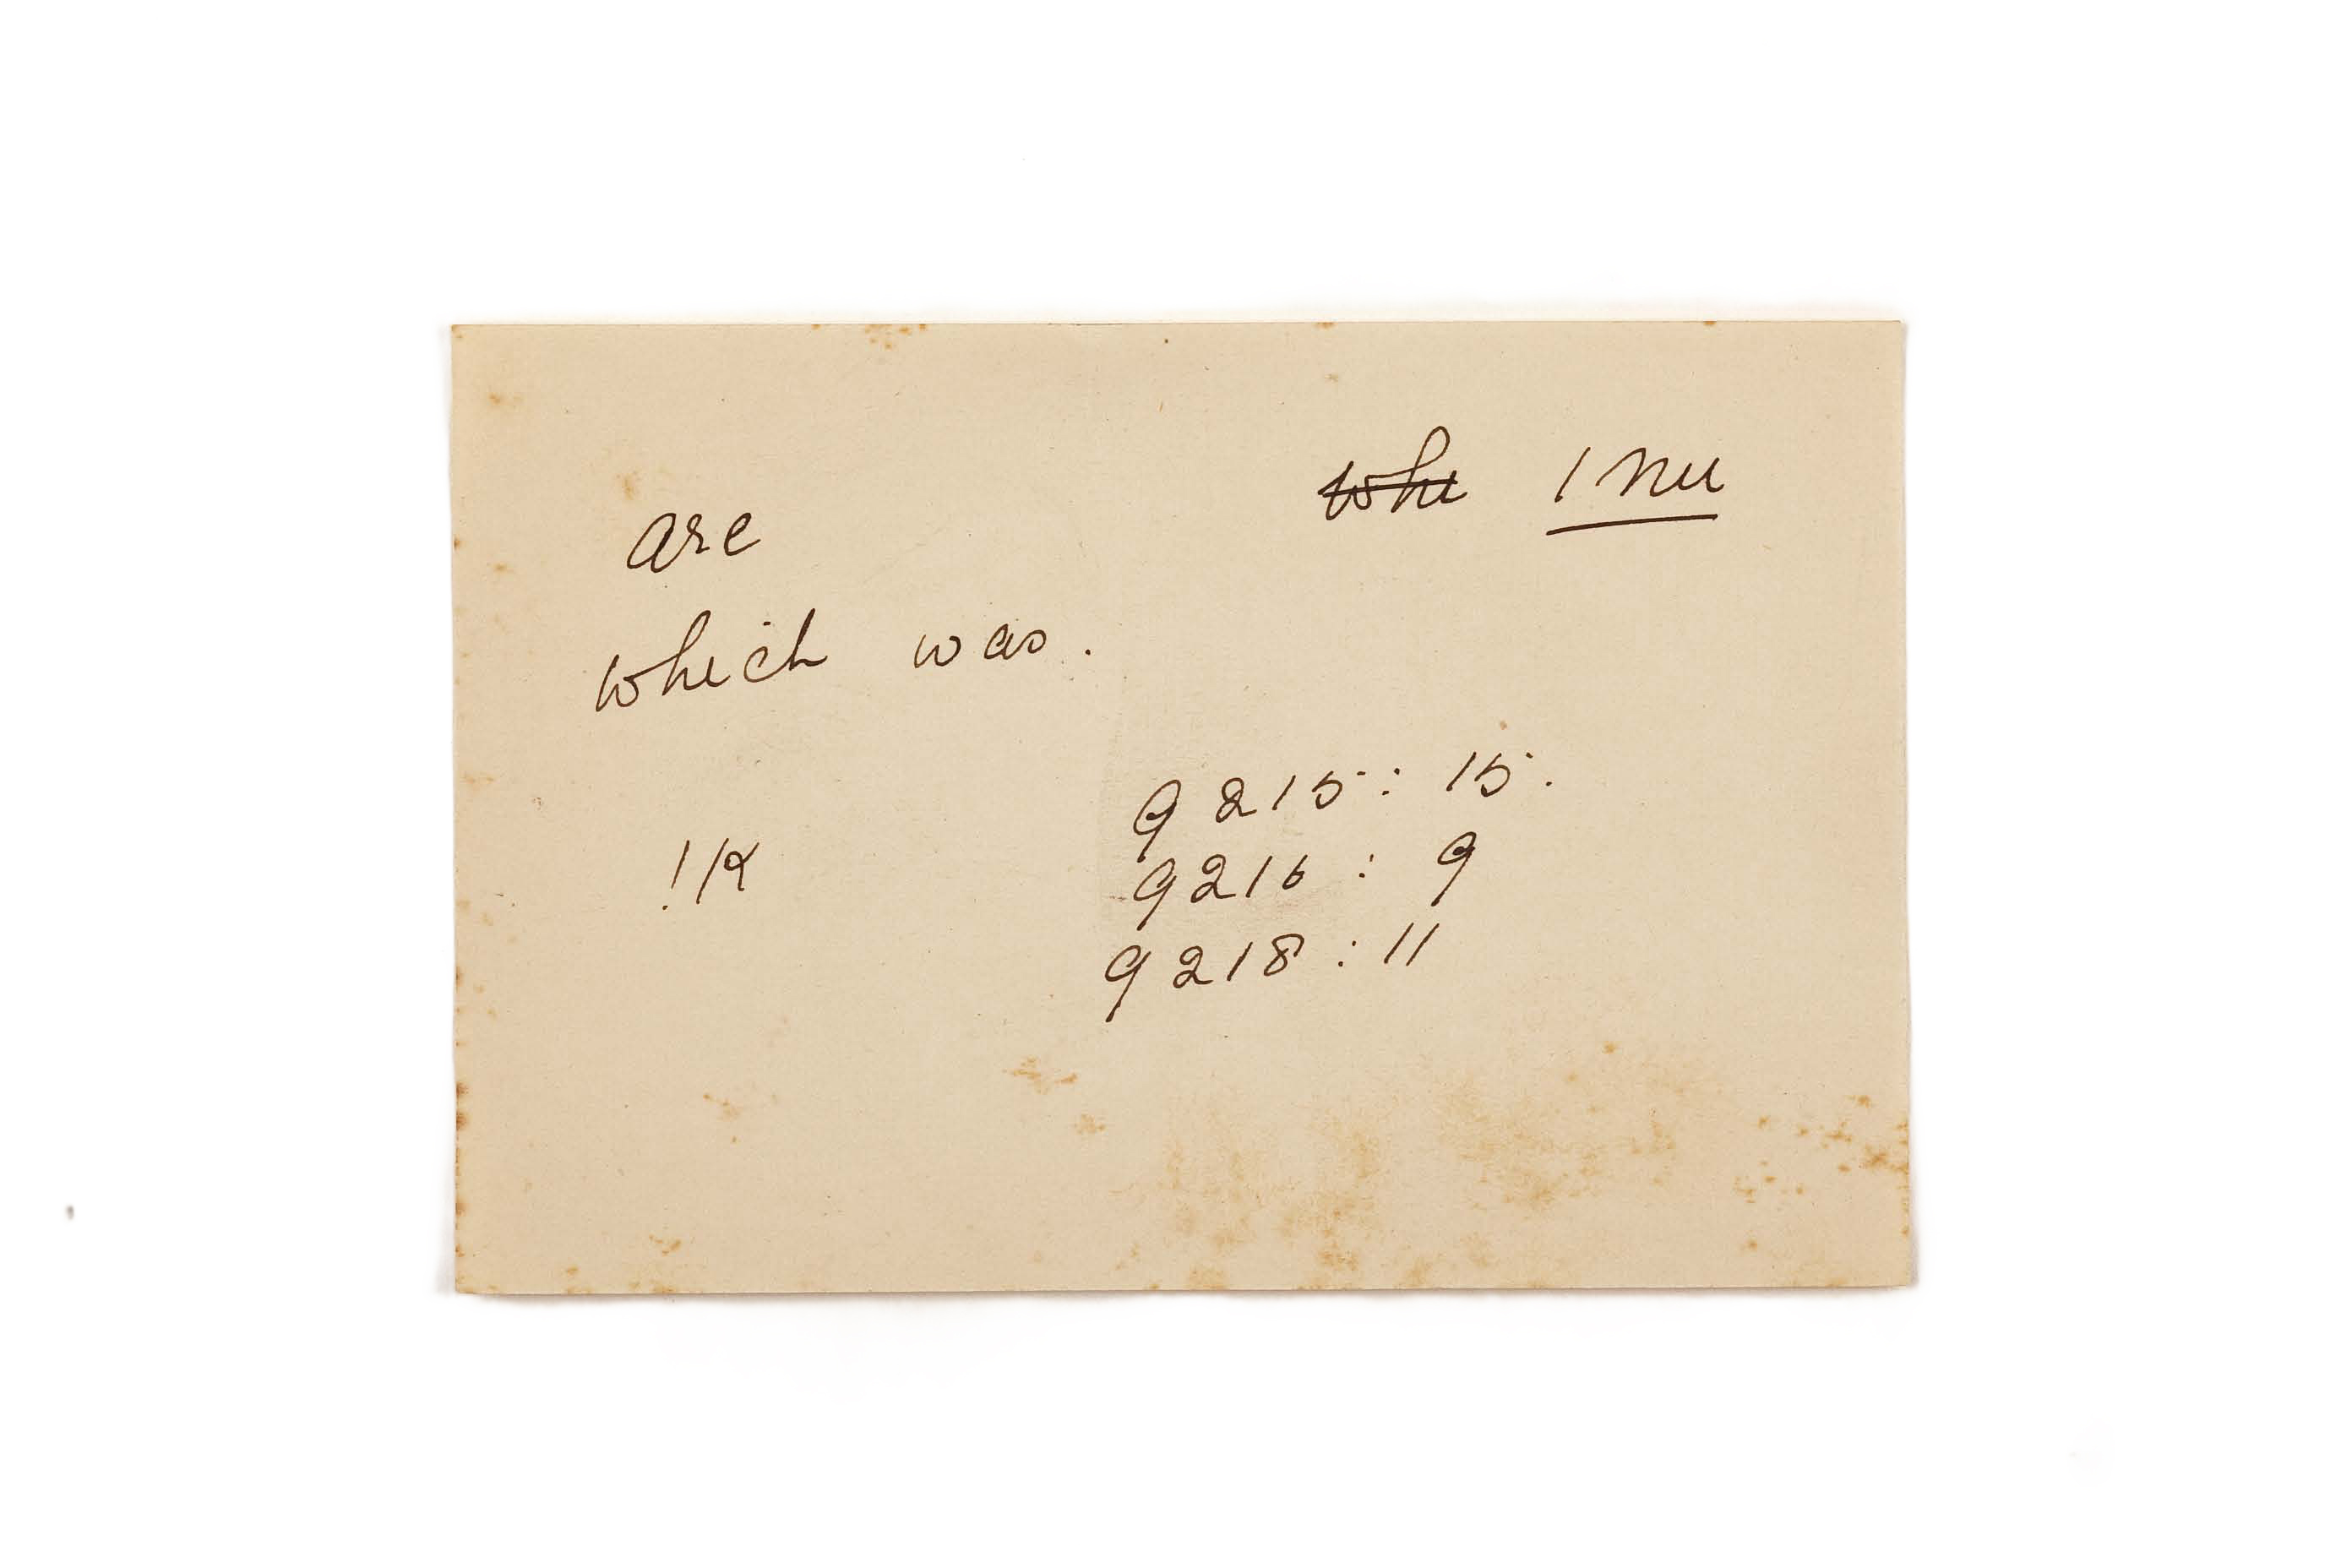 whi /nu
are
which was.
9215: 15.
!k 9216: 9
9218: 11